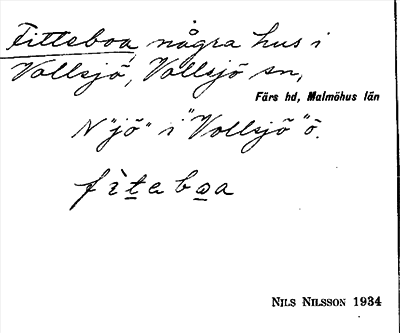 Fitteboa, några hus i
Vollsjö, Vollsjö sn,
Färs hd, Malmöhus län
N "jö" i "Vollsjö" ö.
fìt̲eb̲o̲a
NILS NILSSON 1934